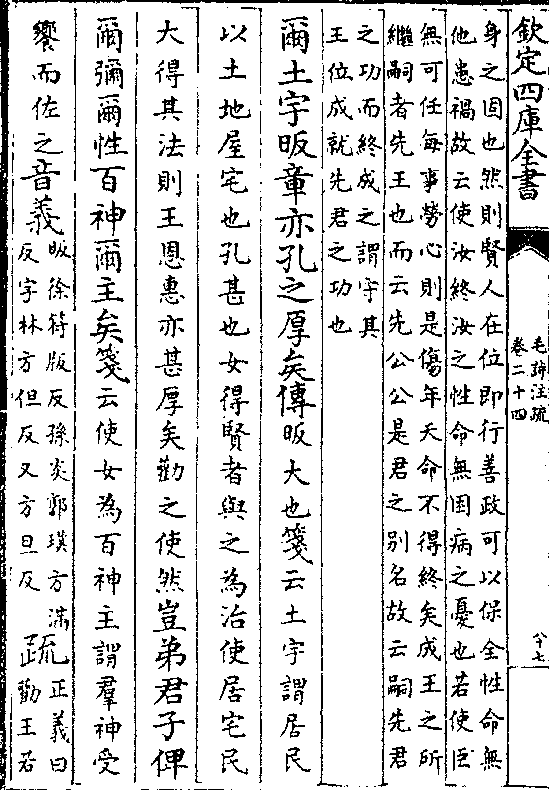 欽定四庫全書
毛詩注疏
卷二十四
八十七
身之困也然則賢人在位即行善政可以保全性命無
他患禍故云使汝終汝之性命無困病之憂也若使臣
無可任每事勞心則是傷年夭命不得終矣成王之所
繼嗣者先王也而云先公公是君之别名故云嗣先君
之功而終成之謂守其
王位成就先君之功也
爾土宇昄章亦孔之厚矣傳昄大也箋云土宇謂居民
以土地屋宅也孔甚也女得賢者與之為治使居宅民
大得其法則王恩惠亦甚厚矣勸之使然豈弟君子俾
爾彌爾性百神爾主矣箋云使女為百神主謂羣神受
饗而佐之音義
昄徐符版反孫炎郭璞方滿
反字林方但反又方旦反
疏
正義曰
勸王若